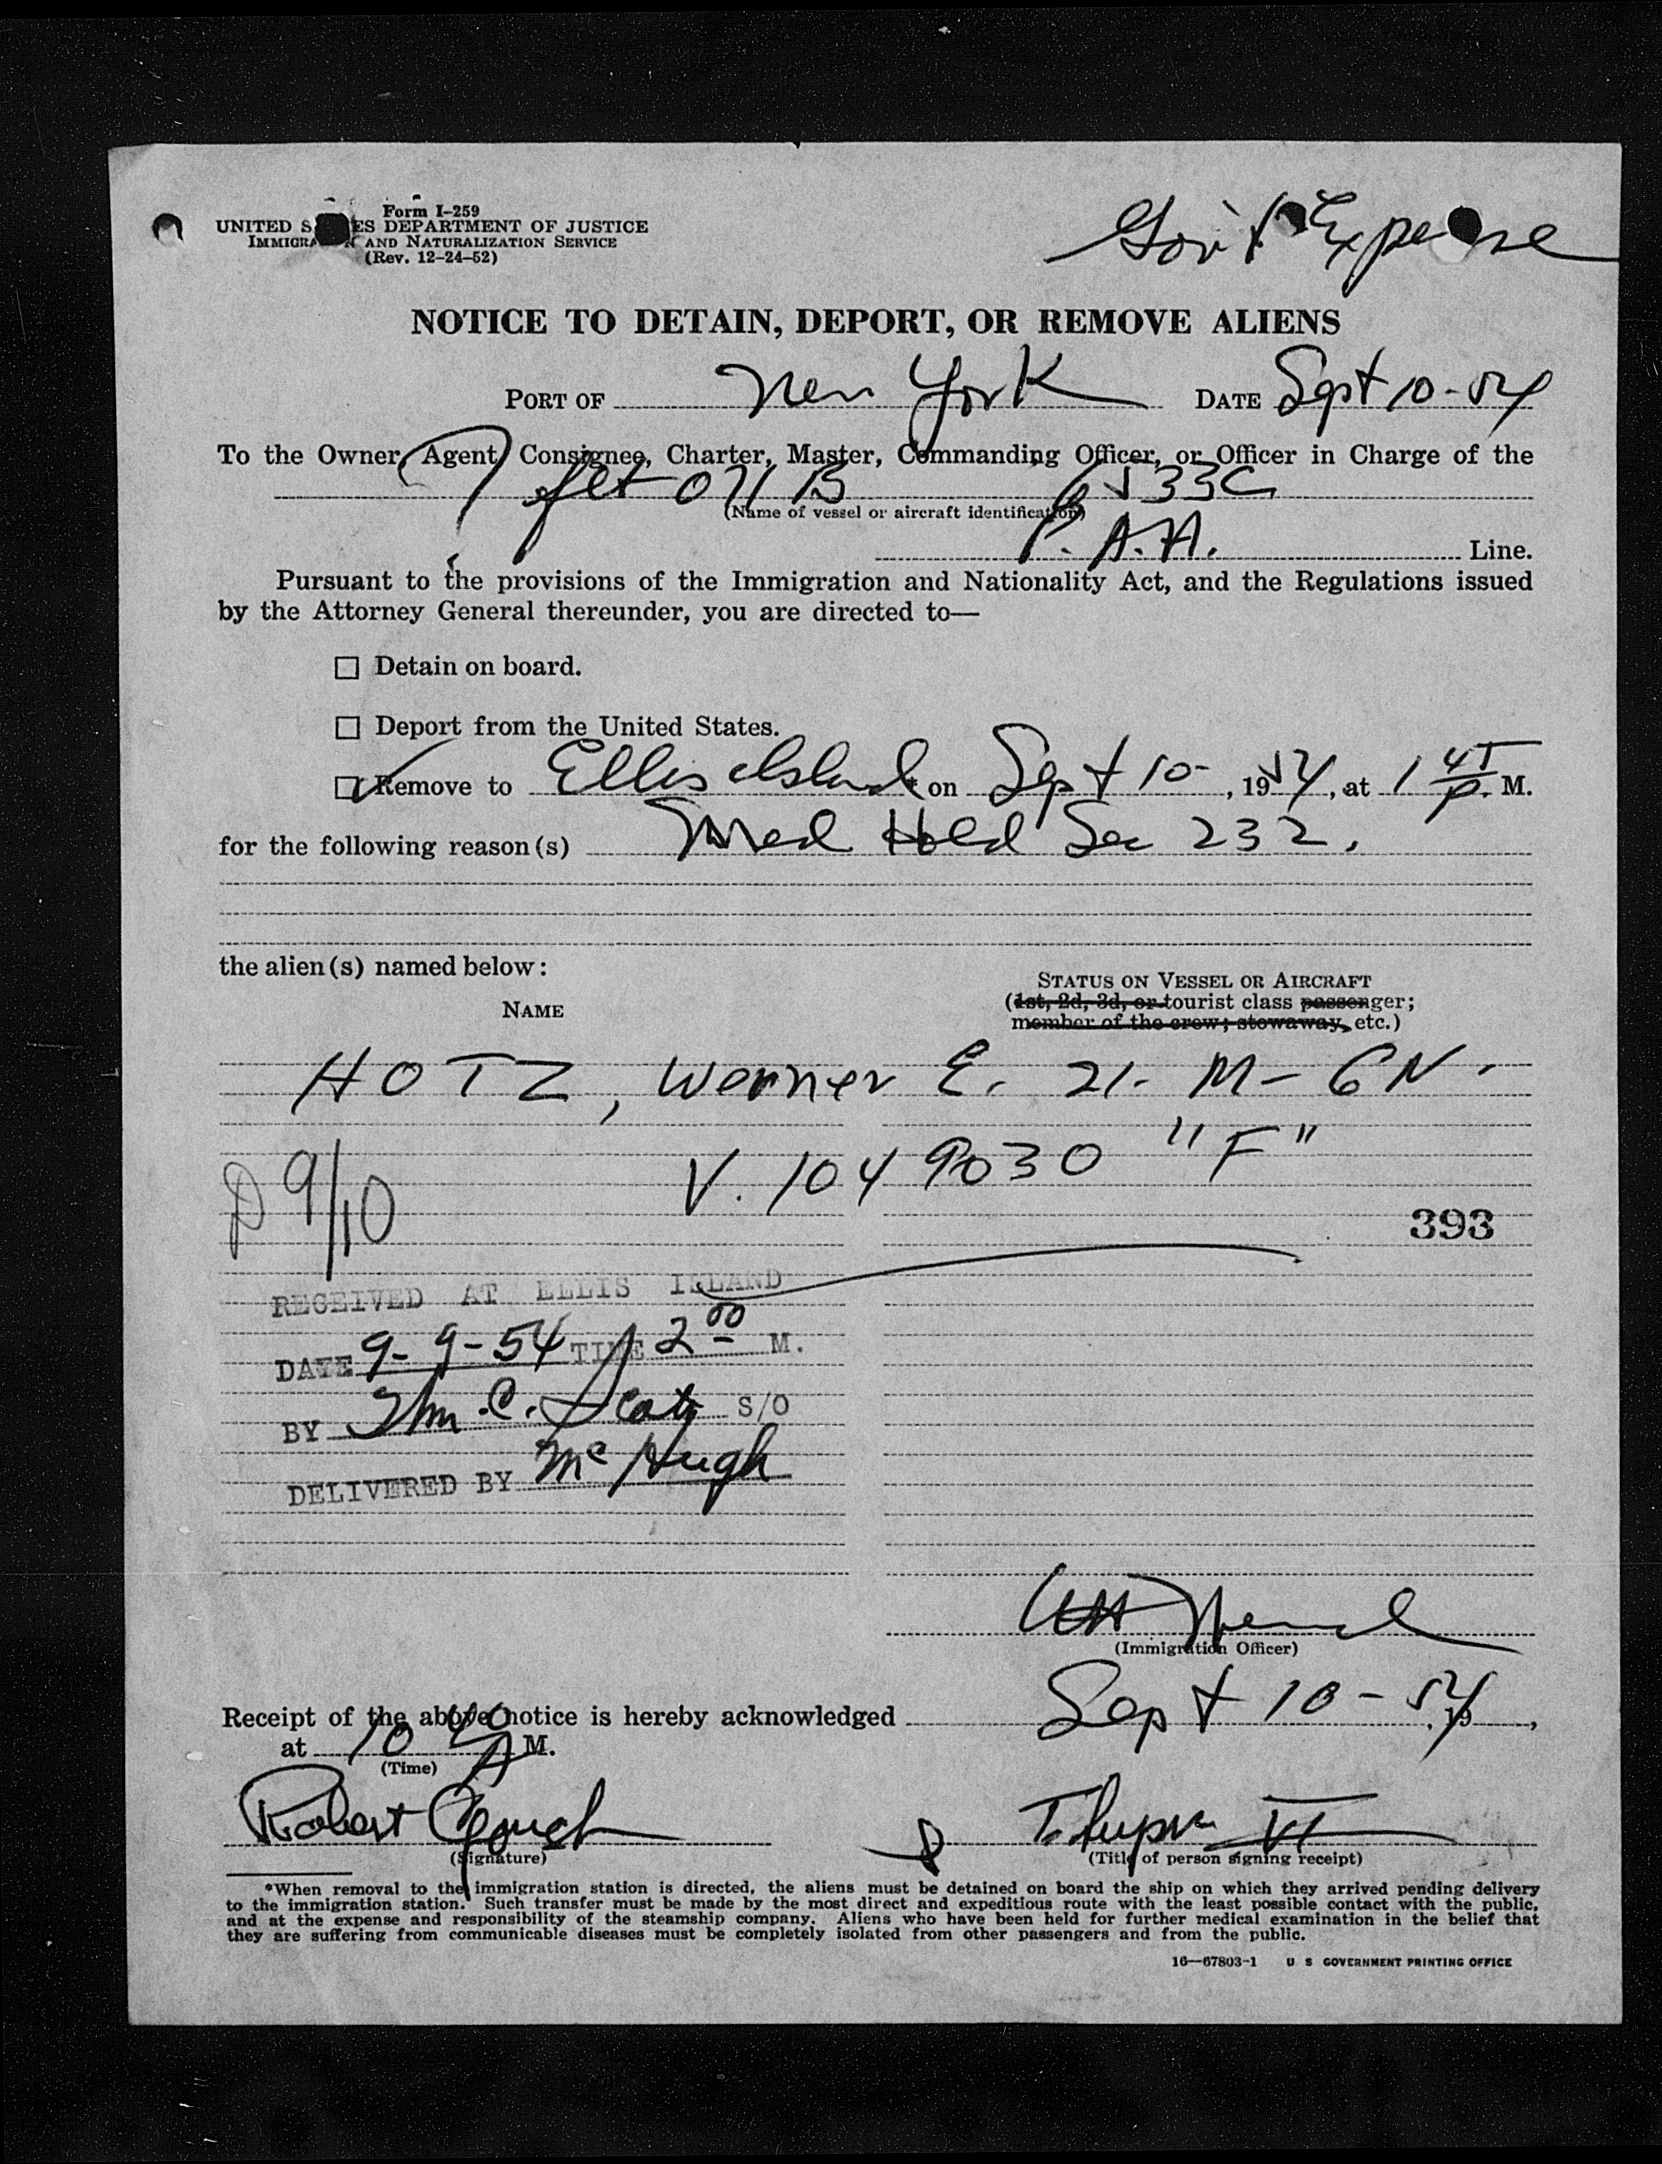 Form I-259
UNITED S ES DEPARTMENT OF JUSTICE
IMMIGRA N AND NATURALIZATION SERVICE
(Rev. 12-24-52)
Gov't Expense
NOTICE TO DETAIN, DEPORT, OR REMOVE ALIENS
PORT OF New York DATE Sept 10-54
To the Owner, Agent, Consignee, Charter, Master, Commanding Officer, or Officer in Charge of the
flt 071 B 6533C
(Name of vessel or aircraft identification)
P. A. A. Line.
Pursuant to the provisions of the Immigration and Nationality Act, and the Regulations issued
by the Attorney General thereunder, you are directed to—
☐ Detain on board.
☐ Deport from the United States.
☐ Remove to Ellis Island * on Sept 10-, 1954, at 1 45 P. M.
for the following reason(s) Med Hold Sec 232.
the alien(s) named below:
STATUS ON VESSEL OR AIRCRAFT
NAME
(1st, 2d, 3d, or tourist class passenger;
member of the crew; stowaway, etc.)
HOTZ, Werner E. 21- M- GN-
V. 1049030 "F"
D 9/10
393
RECEIVED AT ELLIS ISLAND
DATE 9-9-54 TIME 2 00 M.
BY Wm. C. S/O
DELIVERED BY McHugh
(Immigration Officer)
Receipt of the above notice is hereby acknowledged Sept 10-54, 19 ,
at 10 40 A M.
(Time)
Robert
(Signature)
(Title of person signing receipt)
*When removal to the immigration station is directed, the aliens must be detained on board the ship on which they arrived pending delivery
to the immigration station. Such transfer must be made by the most direct and expeditious route with the least possible contact with the public,
and at the expense and responsibility of the steamship company. Aliens who have been held for further medical examination in the belief that
they are suffering from communicable diseases must be completely isolated from other passengers and from the public.
16—67803-1 U S GOVERNMENT PRINTING OFFICE